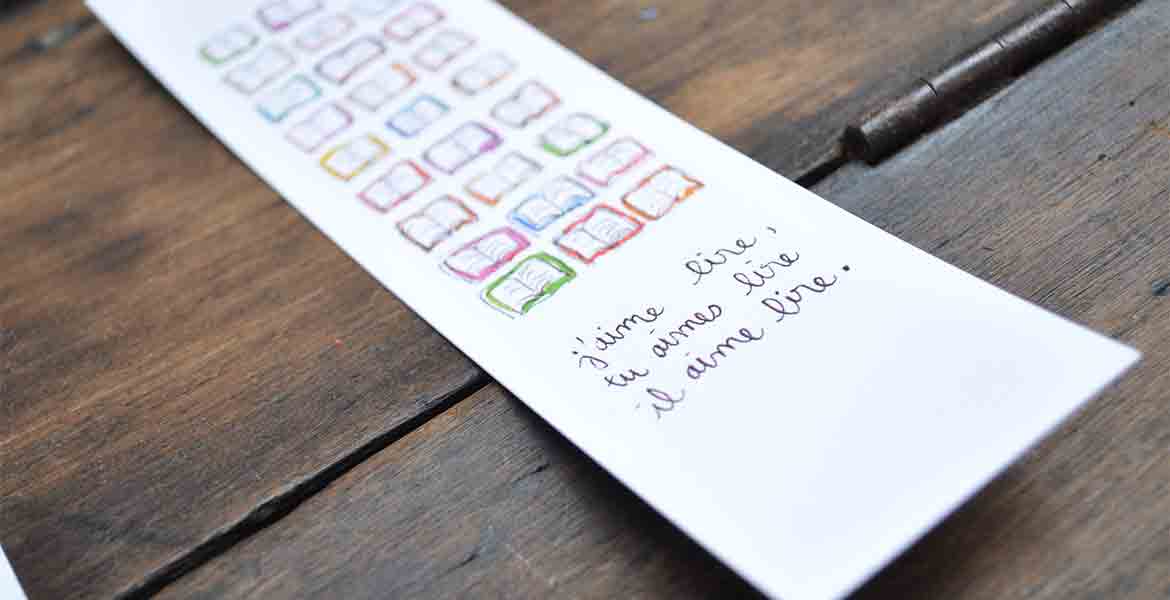 j'aime lire,
tu aimes lire
il aime lire.